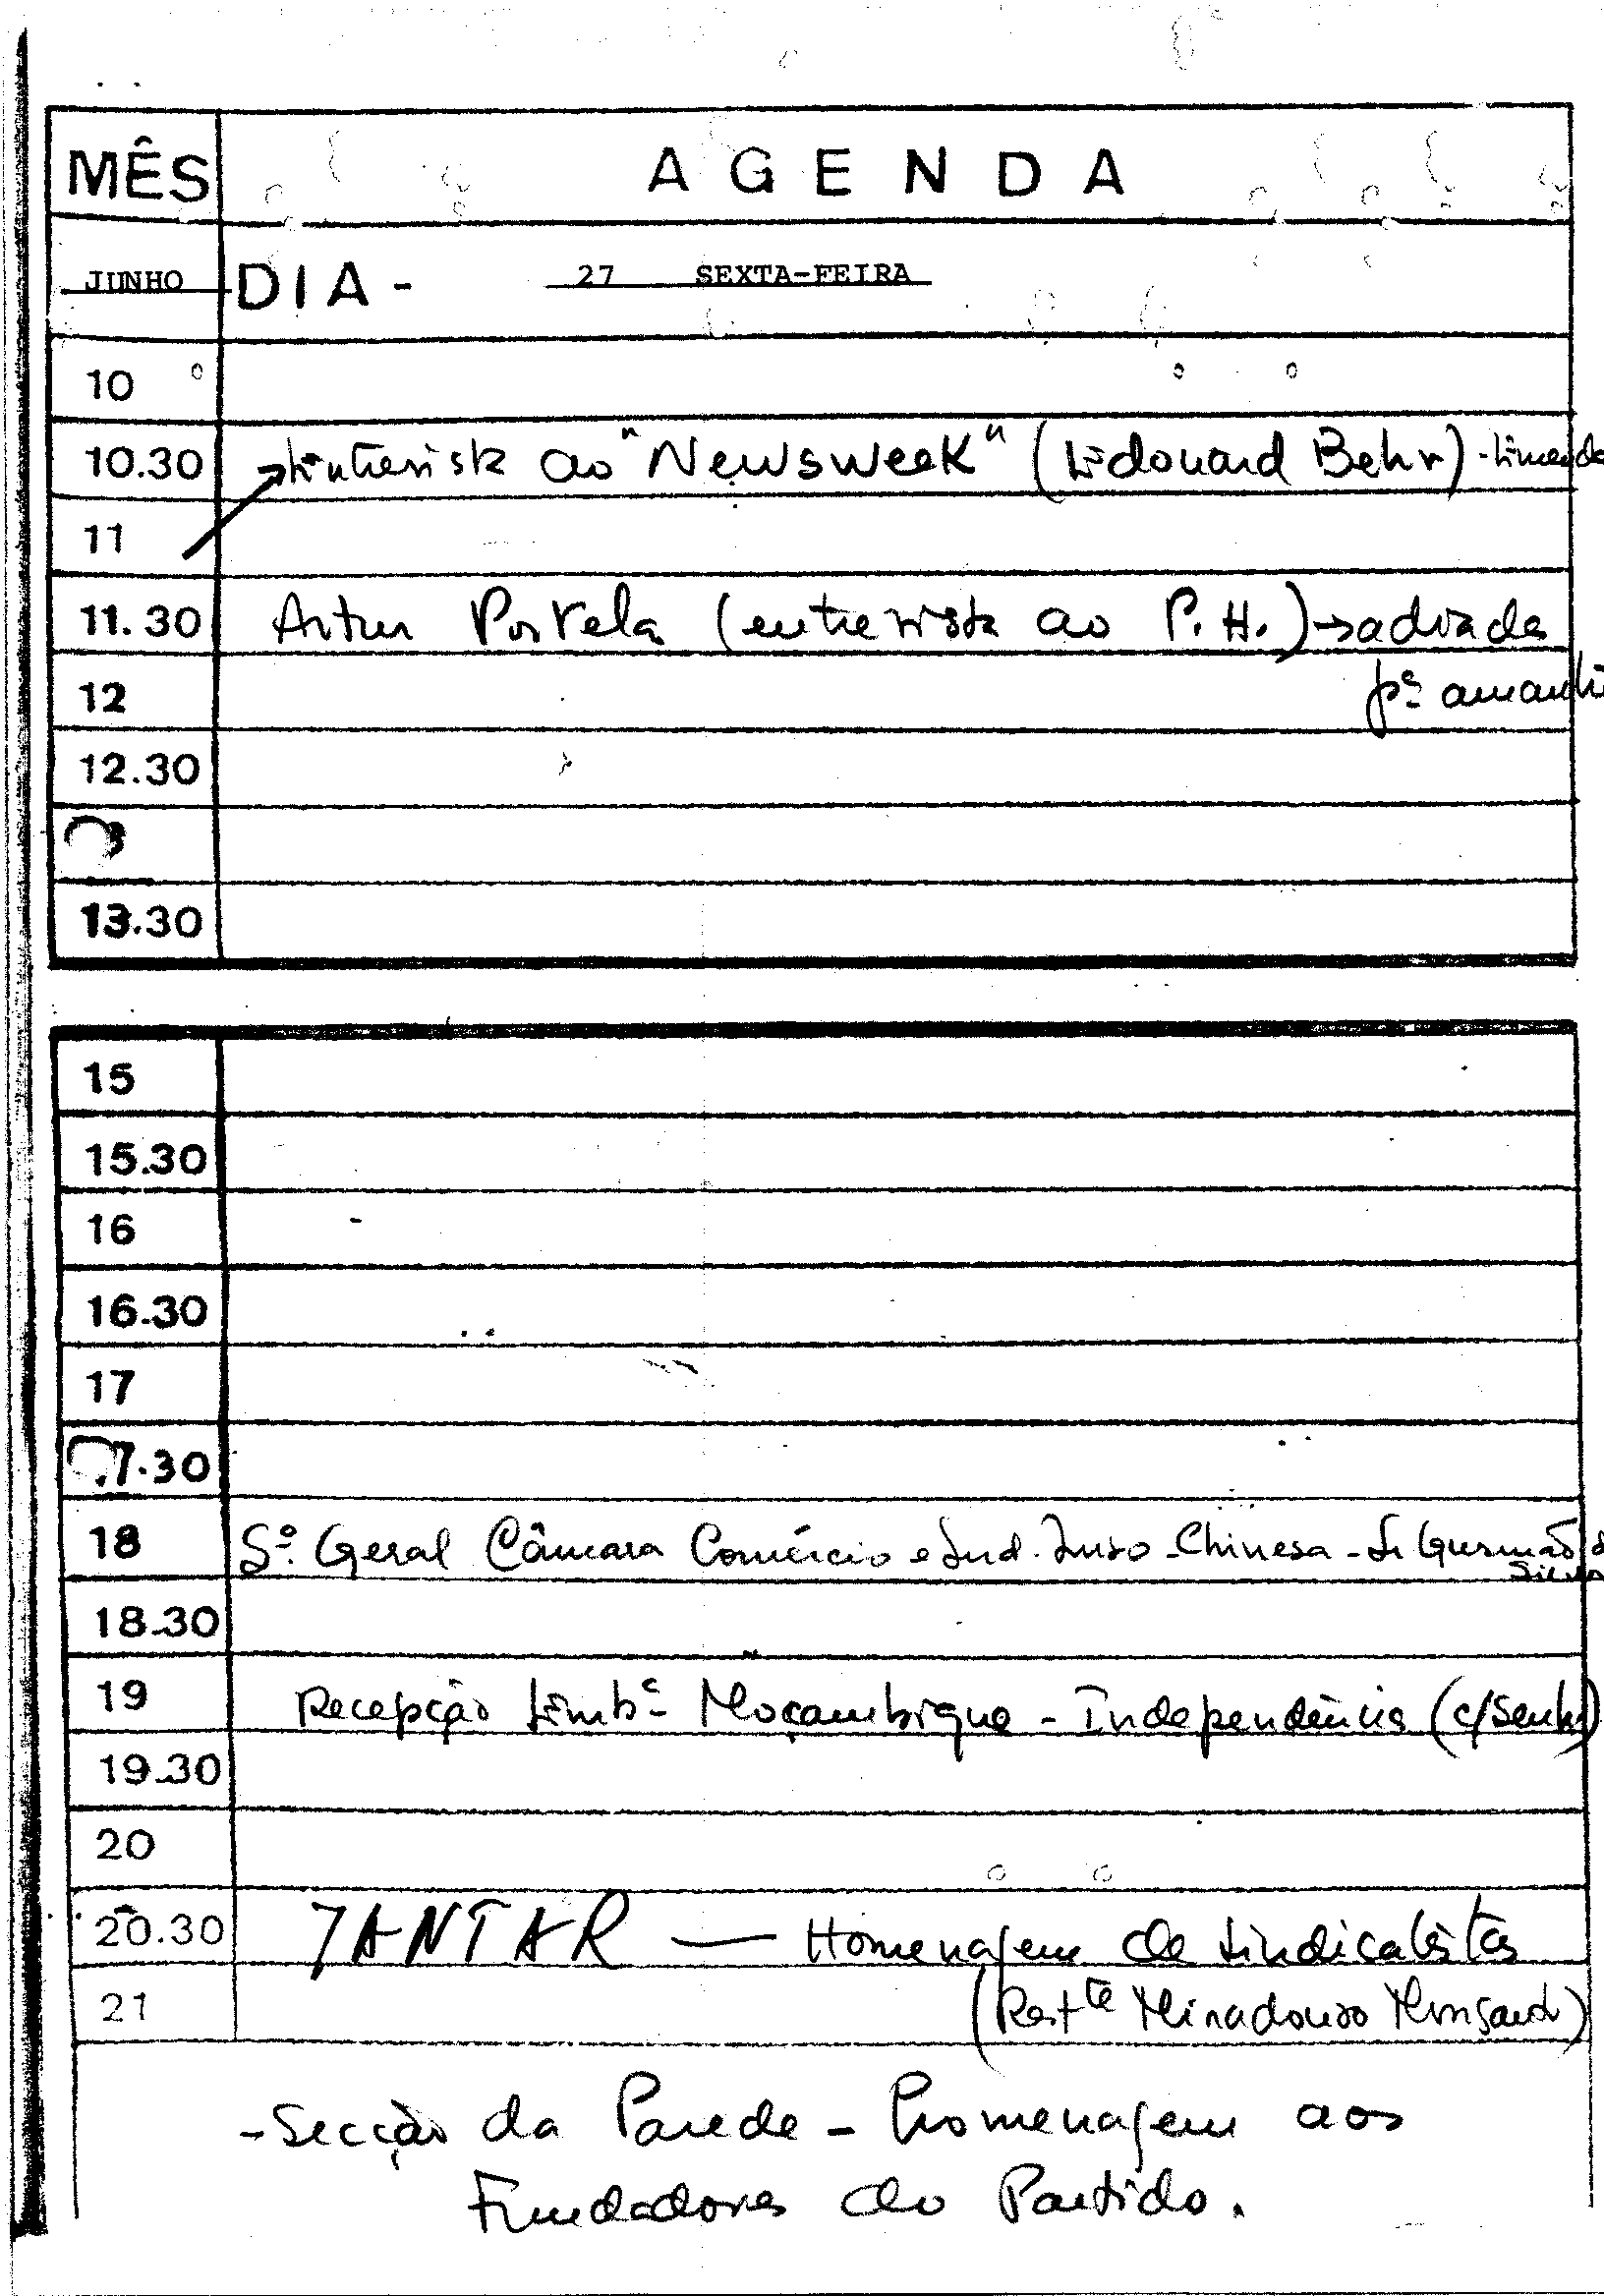 MÊS AGENDA
JUNHO DIA - 27 SEXTA-FEIRA
10
10.30 Entrevista ao "Newsweek" (Edouard Behr) -
11
11.30 Artur Portela (entrevista ao P.H.) → adiada
12 pª amanhã
12.30
13.30
15
15.30
16
16.30
17
.7.30
18 Sº. Geral Câmara Comércio e Ind. Luso-Chinesa - Gusmão
Silva
18.30
19 Recepção Embª Moçambique - Independência (c/Senh)
19.30
20
20.30 JANTAR — Homenagem de Sindicalistas
21 (Restte Miradouro Monsanto)
- Secção da Parede - homenagem aos
Fundadores do Partido.